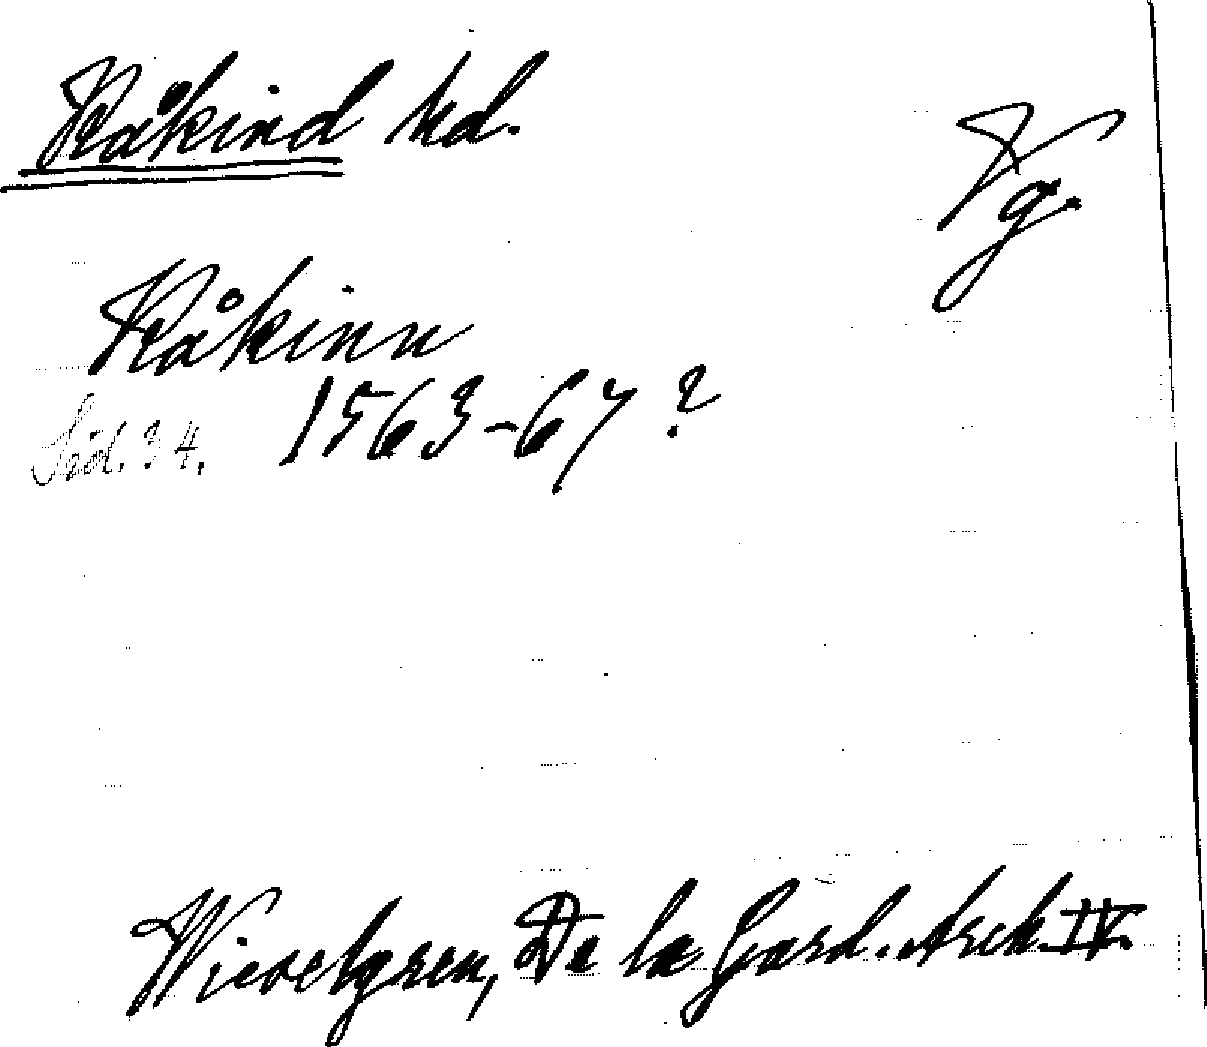 Kåkind hd.
Vg.
Kåkinn
1563-67?
Sid. 34.
Wieselgren, De la Gard. Arch. IV.